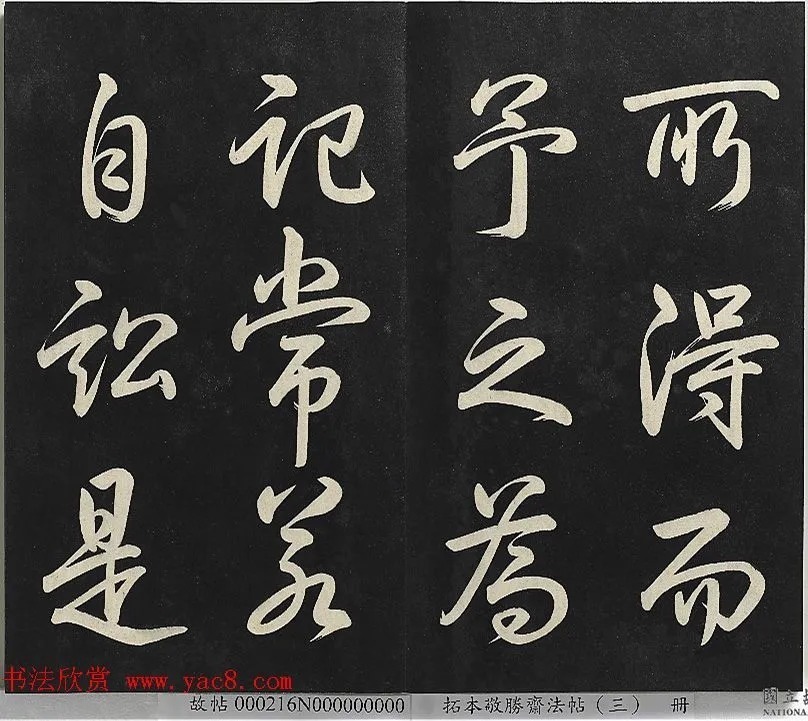 所得而
予之為
記常若
自訟是
书法欣赏 www.yac8.com
故帖000216N000000000 拓本敬勝齋法帖（三） 册
國立
NATIONA